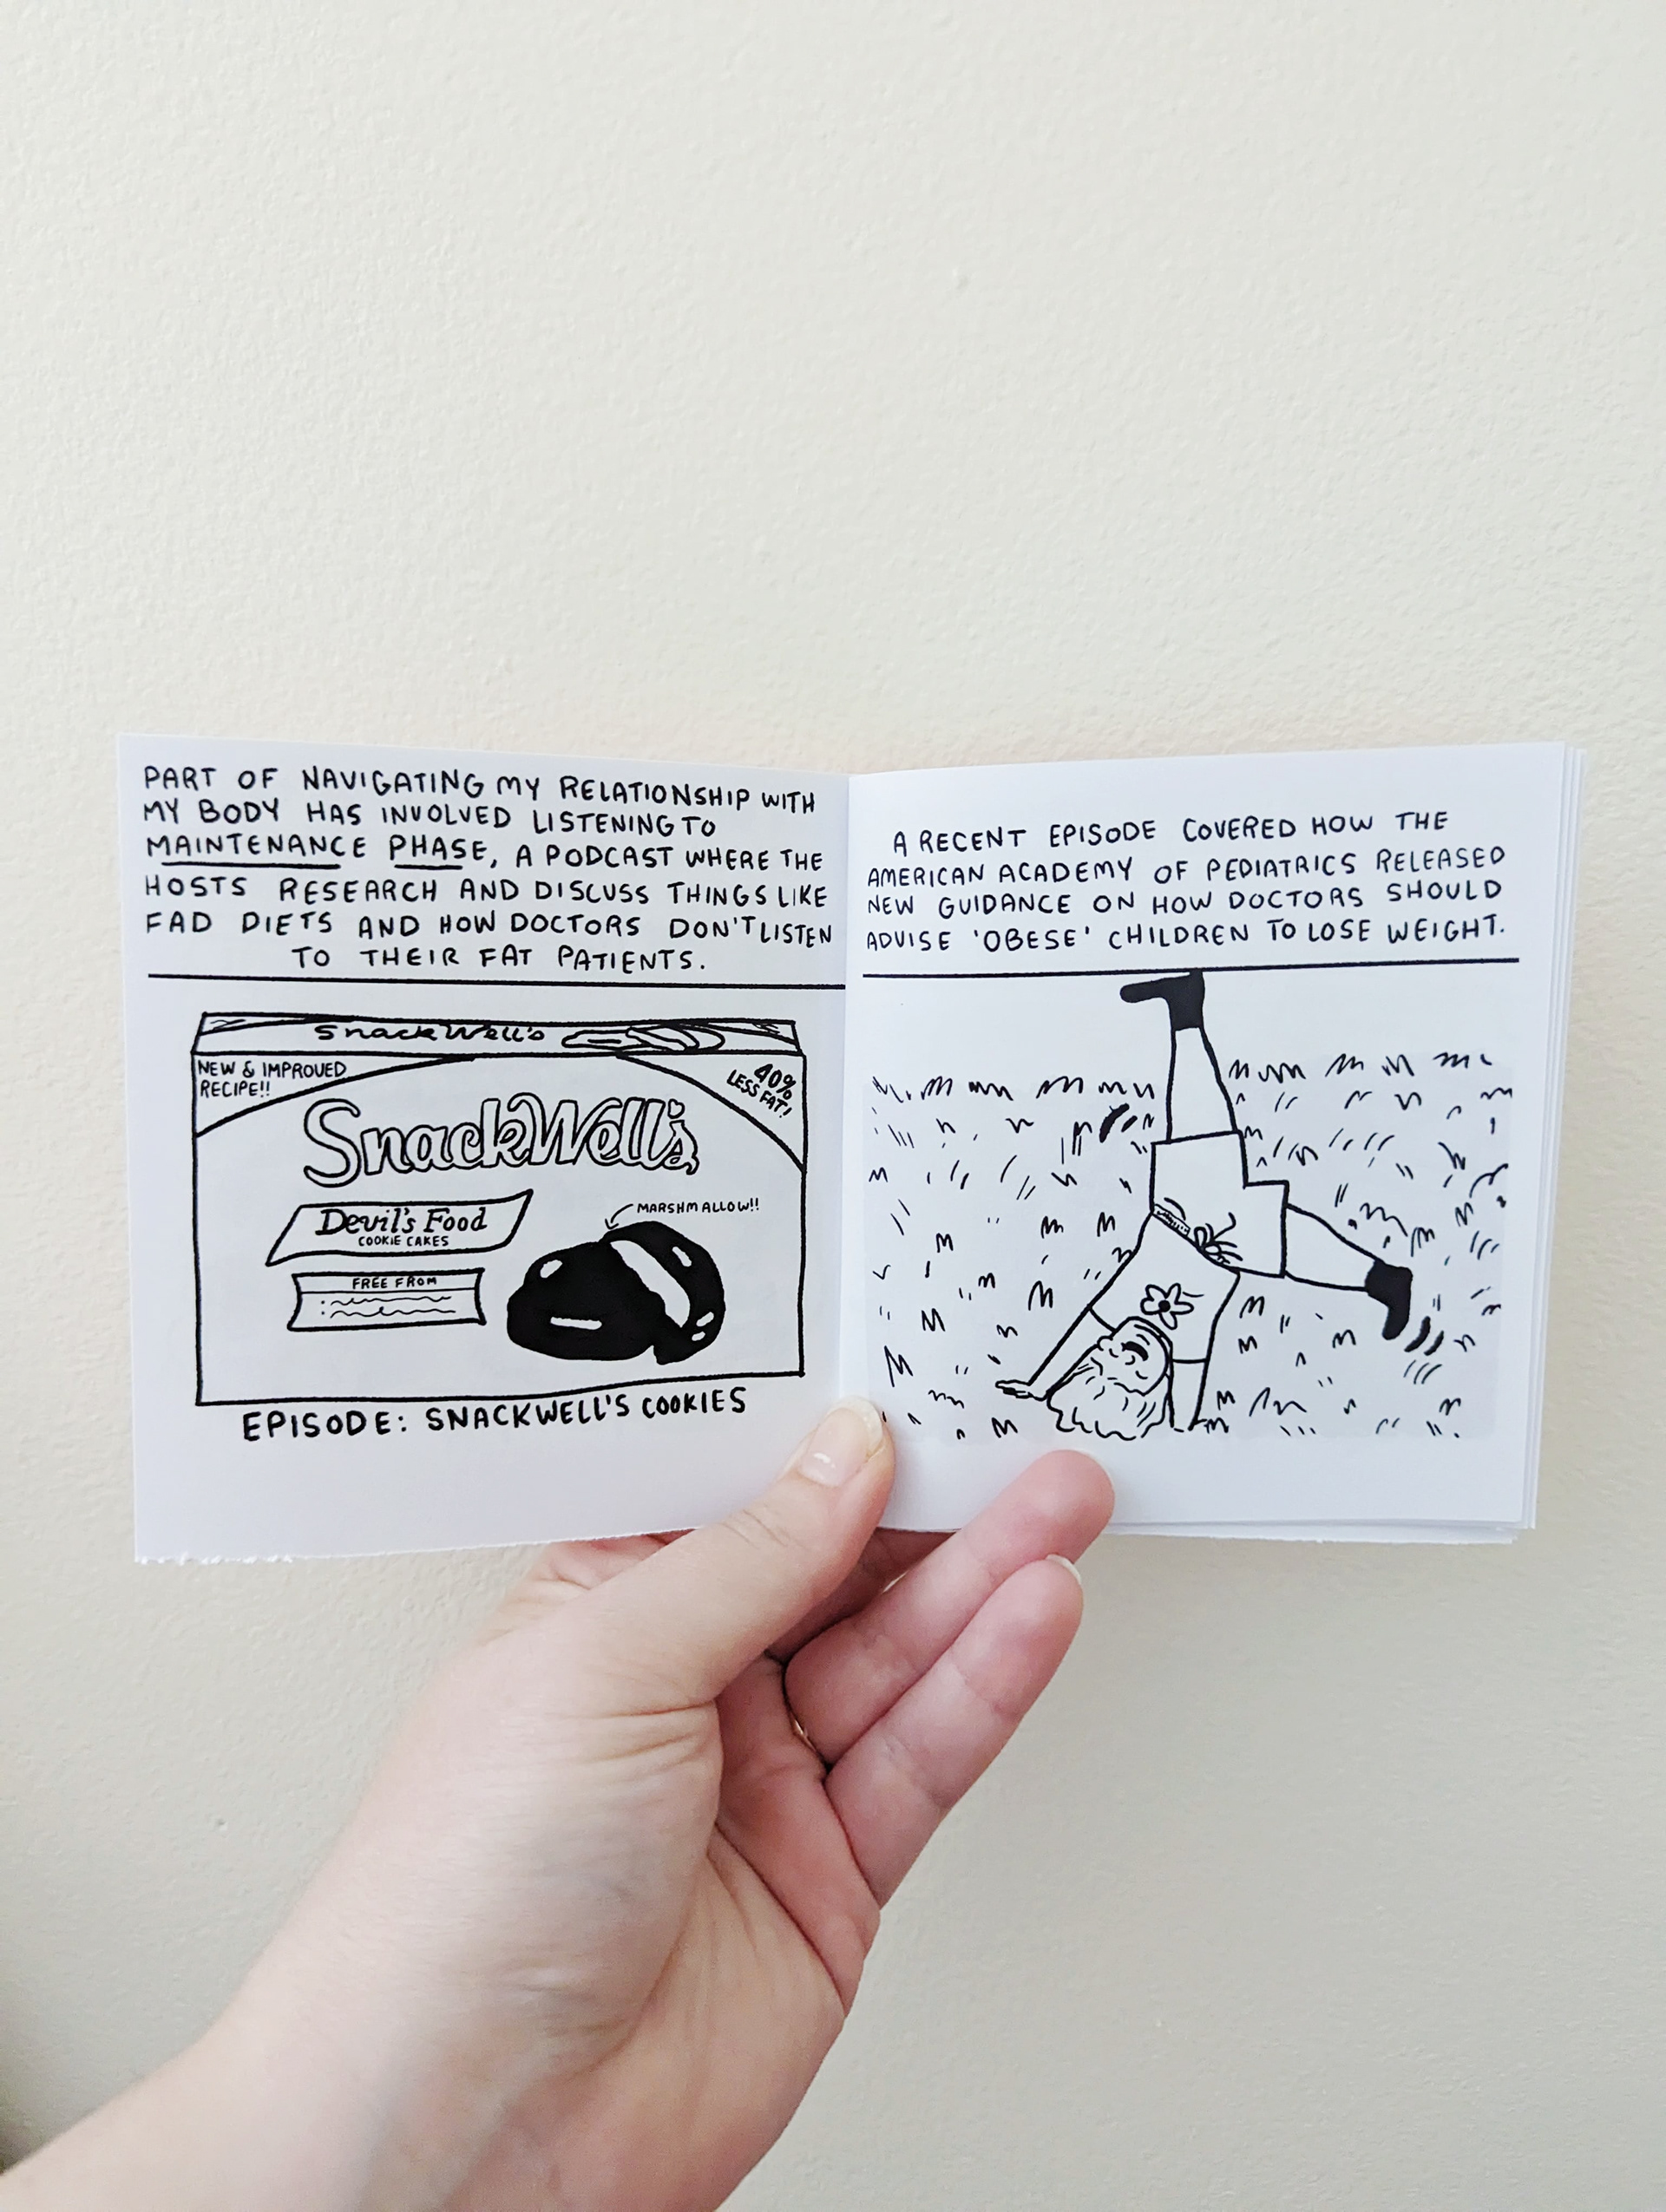 PART OF NAVIGATING MY RELATIONSHIP WITH
MY BODY HAS INVOLVED LISTENING TO
MAINTENANCE PHASE, A PODCAST WHERE THE
HOSTS RESEARCH AND DISCUSS THINGS LIKE
FAD DIETS AND HOW DOCTORS DON'T LISTEN
TO THEIR FAT PATIENTS.
SnackWell's
NEW & IMPROVED
RECIPE!!
40%
LESS FAT!
SnackWell's
MARSHMALLOW!!
Devil's Food
COOKIE CAKES
FREE FROM
EPISODE: SNACKWELL'S COOKIES
A RECENT EPISODE COVERED HOW THE
AMERICAN ACADEMY OF PEDIATRICS RELEASED
NEW GUIDANCE ON HOW DOCTORS SHOULD
ADVISE 'OBESE' CHILDREN TO LOSE WEIGHT.